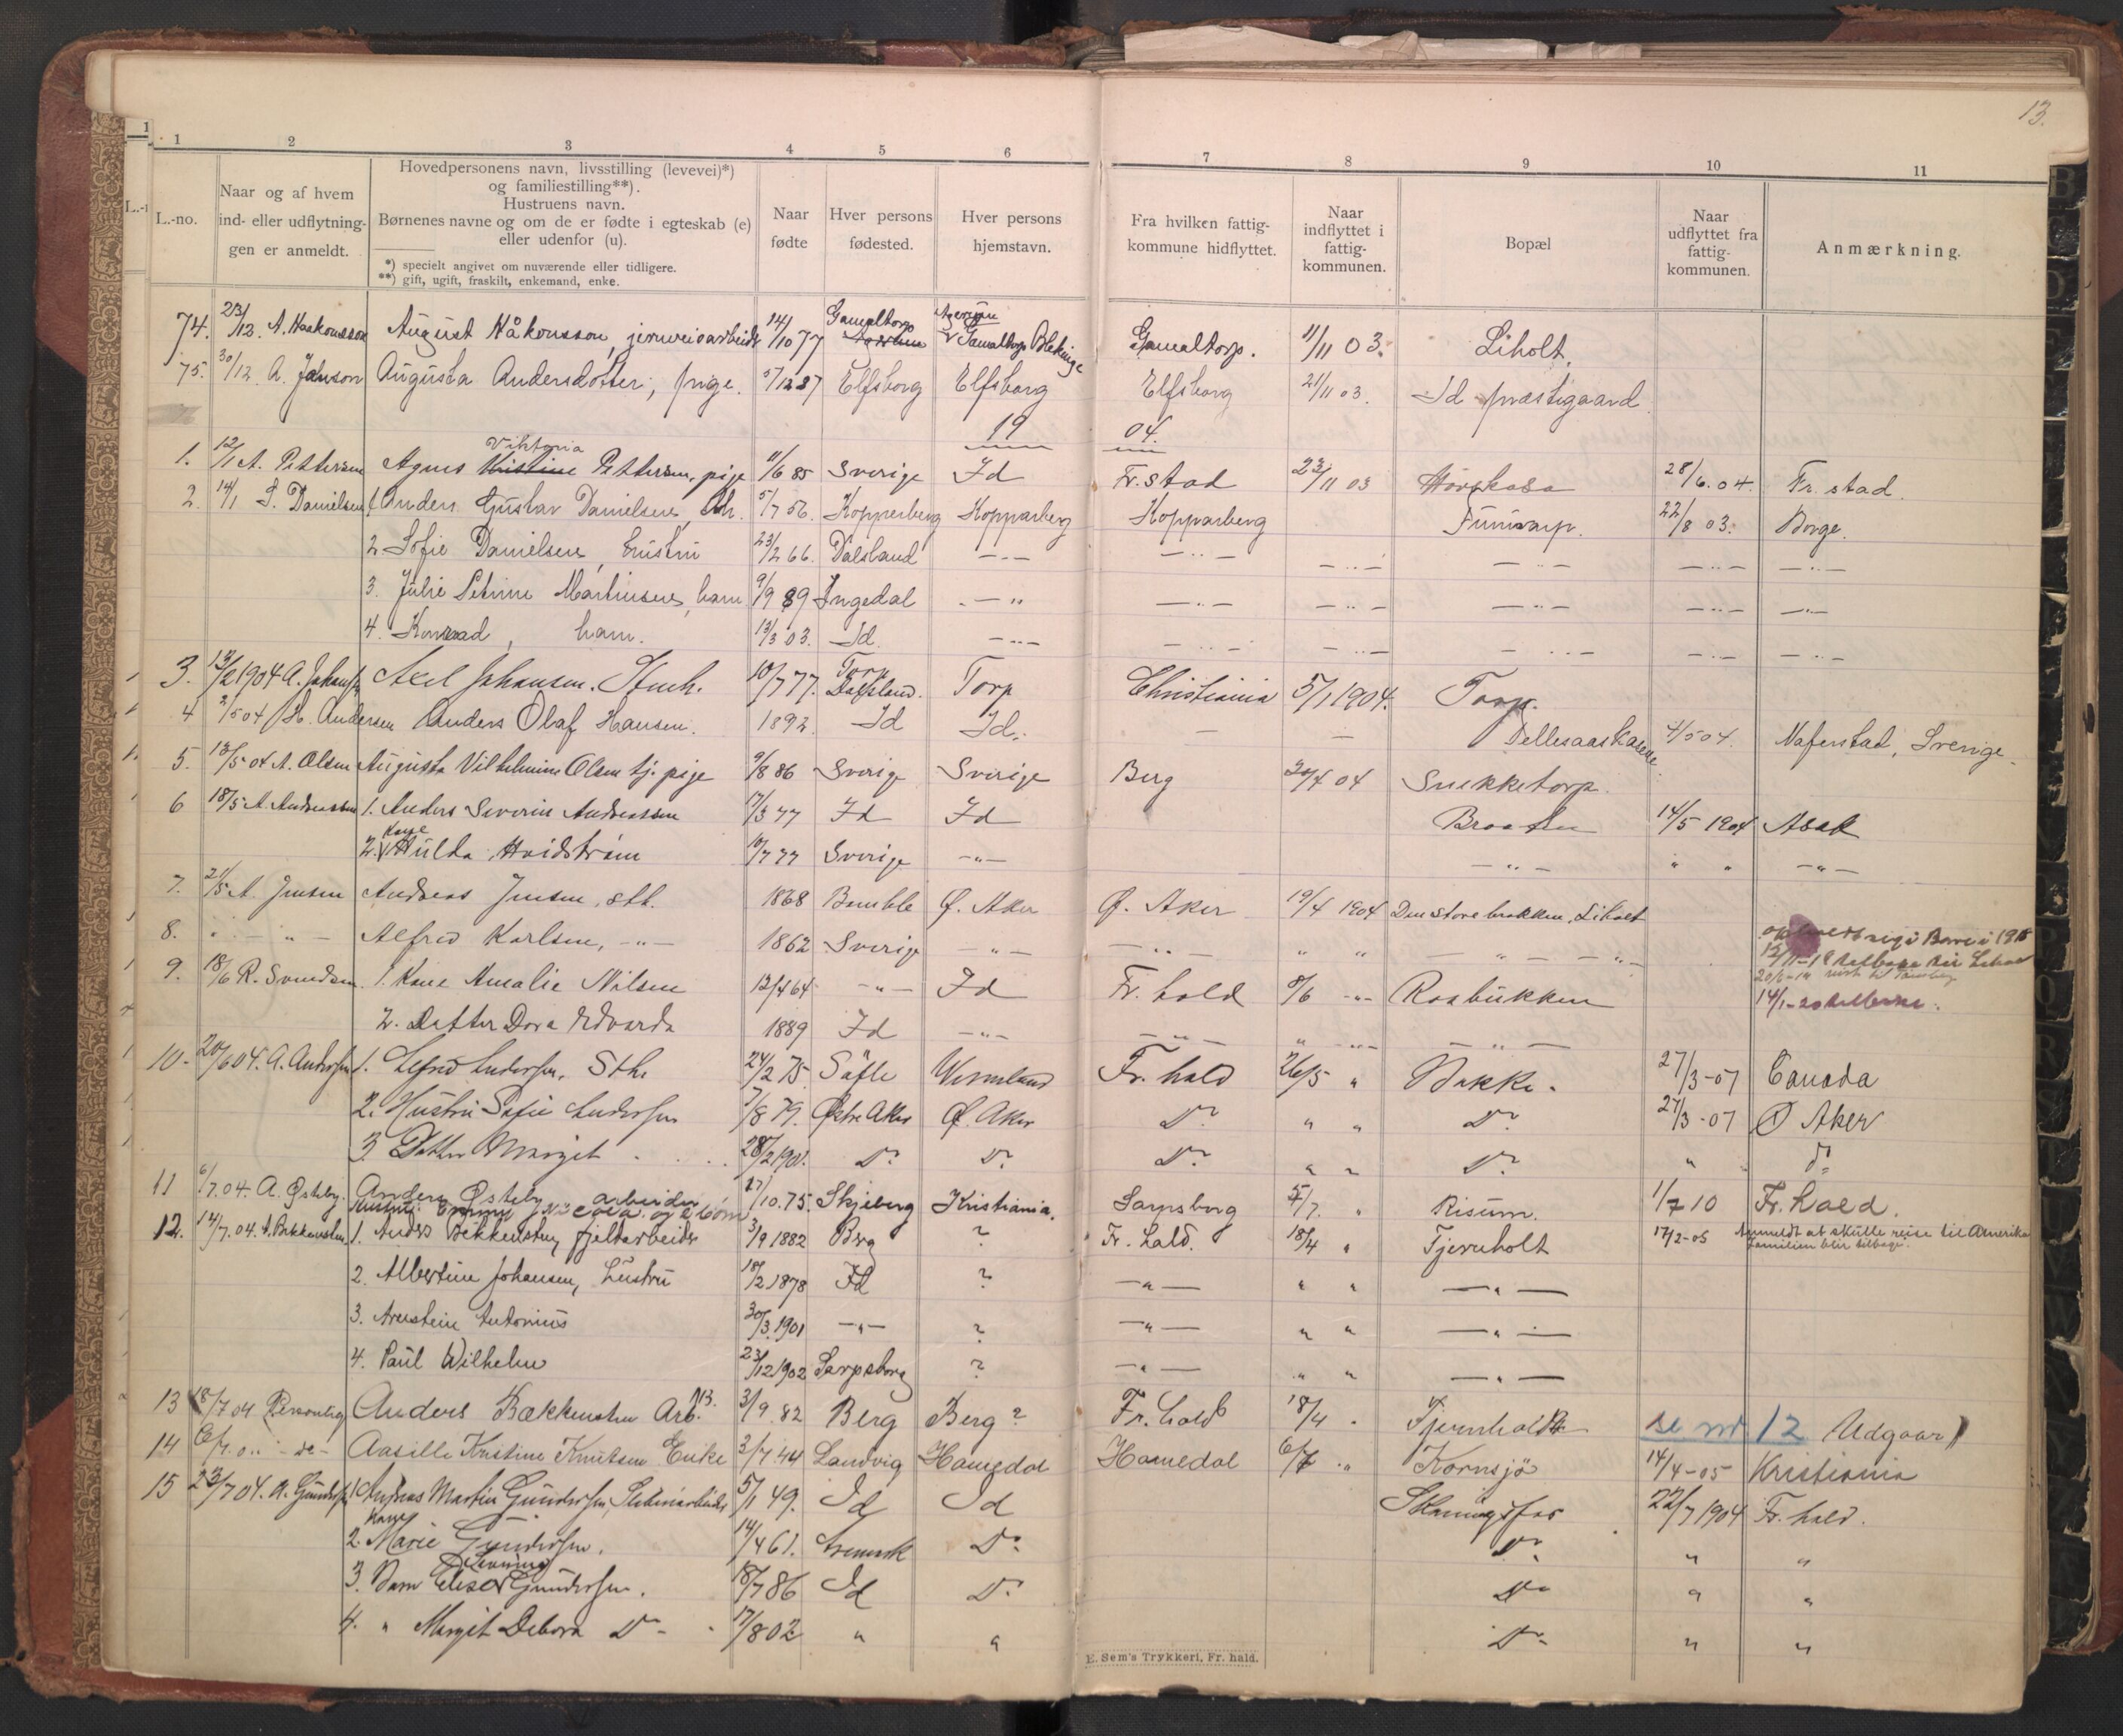 13.
1 1 2 3 4 5 6 7 8 9 10 11
L.-no.
Naar og af hvem
ind- eller udflytning-
gen er anmeldt.
Hovedpersonens navn, livsstilling (levevei)*)
og familiestilling**).
Hustruens navn.
Børnenes navne og om de er fødte i egteskab (e)
eller udenfor (u).
*) specielt angivet om nuværende eller tidligere.
**) gift, ugift, fraskilt, enkemand, enke.
Naar
fødte
Hver persons
fødested.
Hver persons
hjemstavn.
Fra hvilken fattig-
kommune hidflyttet.
Naar
indflyttet i
fattig-
kommunen.
Bopæl
Naar
udflyttet fra
fattig-
kommunen.
Anmærkning.
74. 23/12. A. Haakonsson August Håkonsson, jernveiarbeider 14/10 77 Gamaltorp Gamaltorp Blekinge Gamaltorp. 11/11 03. Liholt.
75. 30/12. A. Johnson Augusta Andersdotter, pige. 5/12 87 Elfsborg Elfsborg Elfsborg 21/11 03. Id præstegaard
19 04.
1. 12/1 A. Pettersen Agnes Viktoria Pettersen, pige 11/6 85 Sverige Id Fr.stad 23/11 03 28/6.04. Fr.stad.
2. 14/1 S. Danielsen 1. Anders Gustav Danielsen, 5/7 56. Kopperberg Kopparberg Kopparberg 22/8 03. Borge.
2 Sofie Danielsen, hustru 23/2 66. Dalsland — " — — " — — " — — " — — " — — " —
3. Julie Petrine Martinsen, barn 9/9 89 Ingedal — " — " — — " — — " — — " — — " —
4. Konrad, barn. 13/3 03. Id. — " — — " — — " — — " — — " — — " —
3. 13/2 1904 A. Johansen Axel Johansen. Stenh. 10/7 77. Torp Dalsland. Torp Christiania 5/1 1904. Torp.
4 2/5 04 H. Andersen Anders Olaf Hansen. 1892. Id Id. — — 4/5 04. Naverstad, Sverige.
5. 13/5 04 A. Olsen Augusta Vilhelmine Olsen tj. pige 9/8 86 Sverige Sverige Berg 20/4 04 Snekketorp.
6 18/5 A. Andreassen 1. Anders Severin Andreassen 17/3 77 Id Id Braaten 14/5 1904 Asak
2. Kone Hulda Hvidstrøm 10/7 77 Sverige — " — — " — " " — " —
7. 21/5 A. Jensen Andreas Jensen, sth. 1868 Bamble Ø. Aker Ø. Aker 19/4 1904 Den store brakken, Liholt
8. " — " — Alfred Karlsen, — " — 1862 Sverige — " — — " — " " — " — " — " —
9. 18/6 R. Svendsen 1. Kone Amalie Nilsen 12/4 64 — " — Id Fr. hald 8/6 — " — Raabukken 14/1-20
2. Datter Dora Edvarda 1889 Id — " — — " — " — " — — " —
10. 20/6 04. A. Andersen 1. Alfred Andersen, Sth. 24/2 75. Säfle Wermland Fr. hald 26/5 " Bakke. 27/3-07 Canada
2. Hustru Sofie Andersen 5/8 79. Østre Aker Ø. Aker Do " " Do 27/3-07 Ø Aker
3. Datter Margit 28/2 1901. Do Do Do " " Do " " do
11 6/7.04. A. Østeby. Anders Østeby arbeider 27/10.75. Skjeberg Kristiania. Sarpsborg 5/7. " Risum. 1/7 10 Fr. hald.
12. 14/7.04. A. Bækkensten 1. Anders Bækkensten, fjeldarbeider 3/9 1882 Berg ? Fr. hald. 18/4 " Tjernholt 17/2-05 Anmeldt at skulle reise til Amerika
familien blir tilbage.
2. Albertine Johansen, hustru 18/2 1878 Id ? — " — " " — " —
3. Arnstein Antonius 30/3.1901 — " — ? — " — " " — " —
4. Paul Wilhelm 23/12 1902 Sarpsborg ? — " — " " — " —
13 18/7 04 Personlig Anders Bækkensten Arb. 3/9 82 Berg Berg? Fr. hald 18/4 " Tjernholdt se nr 12 Udgaar
14 6/7.0" - do - Aasille Kristine Knutsen Enke 3/7 44 Landvig Homedal Homedal 6/7 " Kornsjø 14/4-05 Kristiania
15 23/7 04. A. Gundersen 1. Andreas Martin Gundersen, 5/1 49. Id Id Skaningsfos 22/7 1904 Fr. hald.
2. Kone Marie Gundersen. 14/4 61. Svensk Do Do " "
3. Barn Gundersen. 18/7 86 Id Do Do " "
4. " Margit Debora Do 17/8 02 " " Do " "
E. Sem's Trykkeri, Fr. hald.